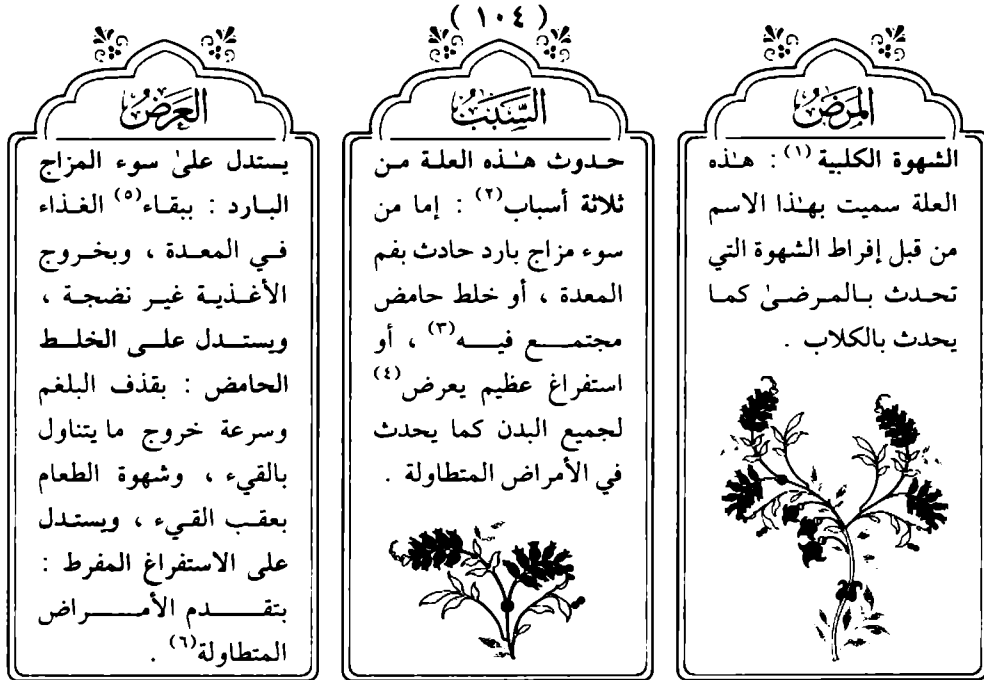 ( ١٠٤ )
المرض
الشهوة الكلبية (١) : هـٰذه
العلة سميت بهـٰذا الاسم
من قبل إفراط الشهوة التي
تحدث بالمرضىٰ كما
يحدث بالكلاب .
السَّبَبُ
حدوث هـٰذه العلة من
ثلاثة أسباب(٢) : إما من
سوء مزاج بارد حادث بفم
المعدة ، أو خلط حامض
مجتمع فيه(٣) ، أو
استفراغ عظيم يعرض(٤)
لجميع البدن كما يحدث
في الأمراض المتطاولة .
العَرَضُ
يستدل علىٰ سوء المزاج
البارد : ببقاء(٥) الغذاء
في المعدة ، وبخروج
الأغذية غير نضجة ،
ويستدل على الخلط
الحامض : بقذف البلغم
وسرعة خروج ما يتناول
بالقيء ، وشهوة الطعام
بعقب القيء ، ويستدل
على الاستفراغ المفرط :
بتقدم الأمراض
المتطاولة(٦) .